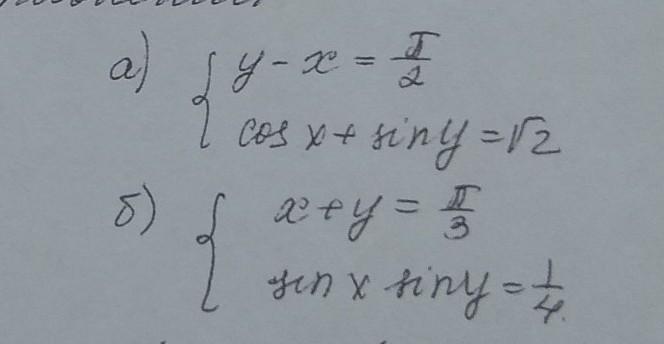 а) { y - x = π/2
cos x + sin y = √2
б) { x + y = π/3
sin x sin y = 1/4.